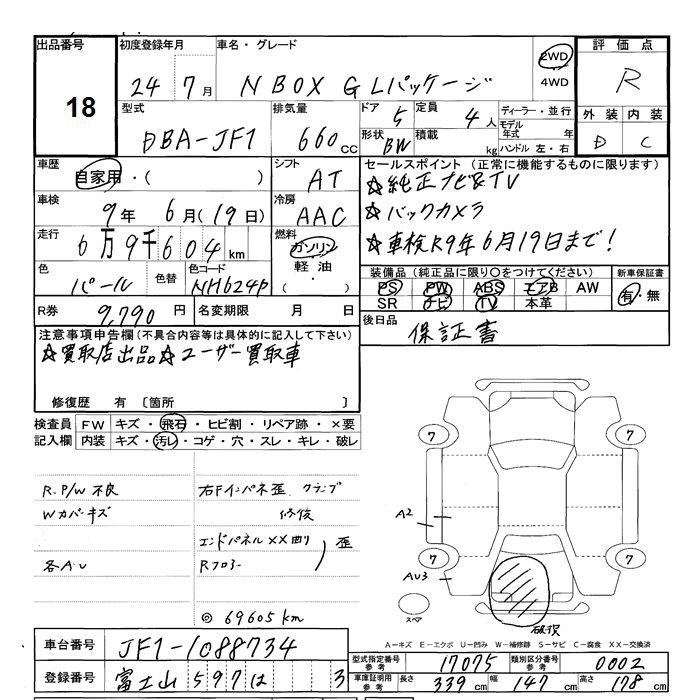 出品番号
18
初度登録年月
24年 7月
車名・グレード
N BOX G Lパッケージ
2WD
4WD
評価点
R
外装 内装
D C
型式
DBA-JF1
排気量
660cc
ドア 5
定員 4人
形状 BW
積載 kg
ディーラー・並行
モデル年式 年
ハンドル 左・右
車歴
自家用・( )
シフト
AT
車検
9年 6月(19日)
冷房
AAC
走行
6万9千604km
燃料
ガソリン
軽油
・( )
色
パール
色替
色コード
NH624P
R券 9,790円
名変期限 月 日
セールスポイント(正常に機能するものに限ります)
☆純正ナビ&TV
☆バックカメラ
☆車検R9年6月19日まで!
装備品(純正品に限り○をつけてください)
PS PW ABS エアB AW
SR ナビ TV 本革
新車保証書
有・無
後日品
保証書
注意事項申告欄(不具合内容等は具体的に記入して下さい)
☆買取店出品☆ユーザー買取車
修復歴 有 〔箇所 〕
検査員記入欄
FW キズ・飛石・ヒビ割・リペア跡・×要
内装 キズ・汚レ・コゲ・穴・スレ・キレ・破レ
R.P/W不良
Wカバーキズ
各AU
右Fインパネ歪 クランプ
修復
エンドパネルXX回り
Rフロアー
歪
◎69605km
7 7
7 7
A2
AU3
スペア
破損
A-キズ E-エクボ U-凹み W-補修跡 S-サビ C-腐食 XX-交換済
車台番号 JF1-1088734
登録番号 富士山 597 は 3
型式指定番号 参考 17075
類別区分番号 参考 0002
車庫証明用 参考 長さ 339cm 幅 147cm 高さ 178cm